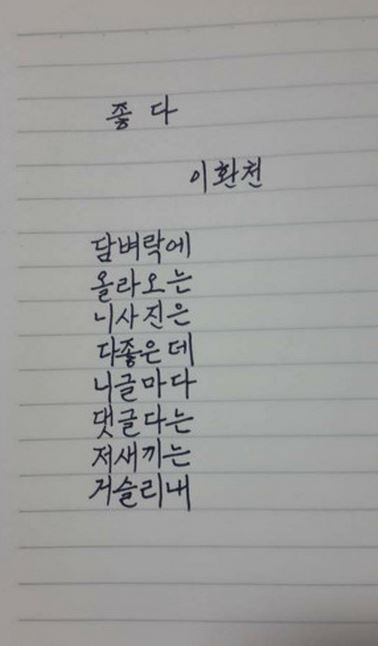 좋다
이환천
담벼락에
올라오는
니사진은
다좋은데
니글마다
댓글다는
저새끼는
거슬리내